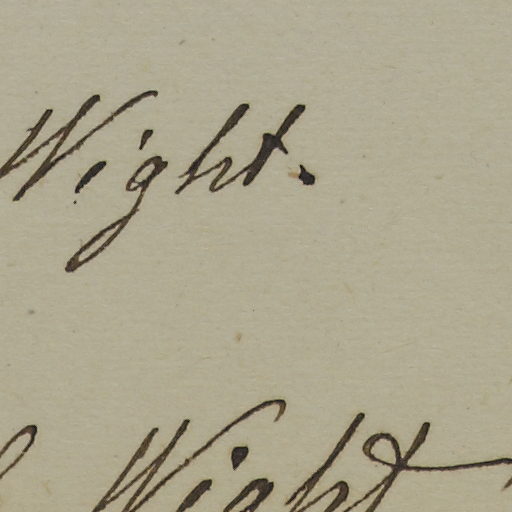 Wight.
Wight